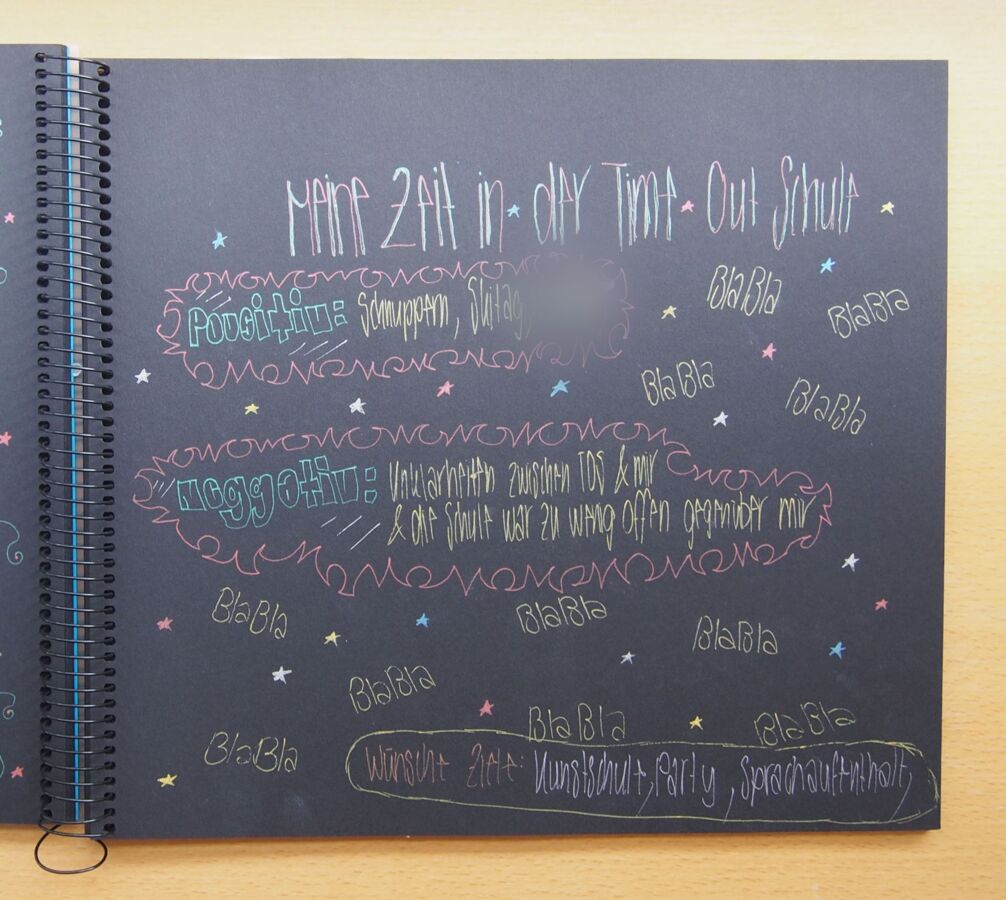 Meine Zeit in der Time Out Schule
BlaBla
BlaBla
Pousitiv: Schnuppern, Skitag,
BlaBla
BlaBla
neggativ: Unklarheiten zwischen TOS & mir
& die Schule war zu wenig offen gegenüber mir
BlaBla
BlaBla
BlaBla
BlaBla
BlaBla
BlaBla
BlaBla
Wünsche Ziele: Kunstschule, Party, Sprachaufenthalt,